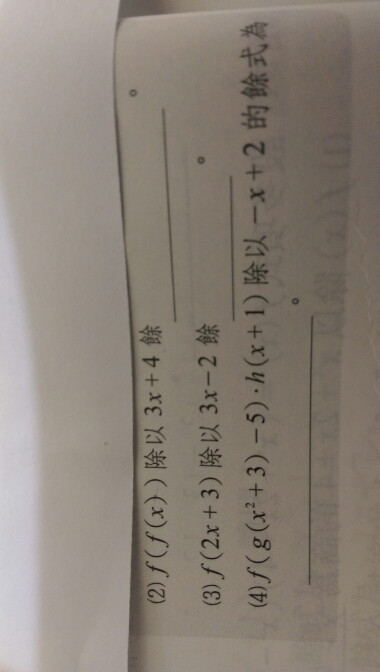 (2) f(f(x))除以 3x+4 餘________。
(3) f(2x+3)除以 3x−2 餘________。
(4) f(g(x²+3)−5)·h(x+1)除以 −x+2 的餘式為
________________。